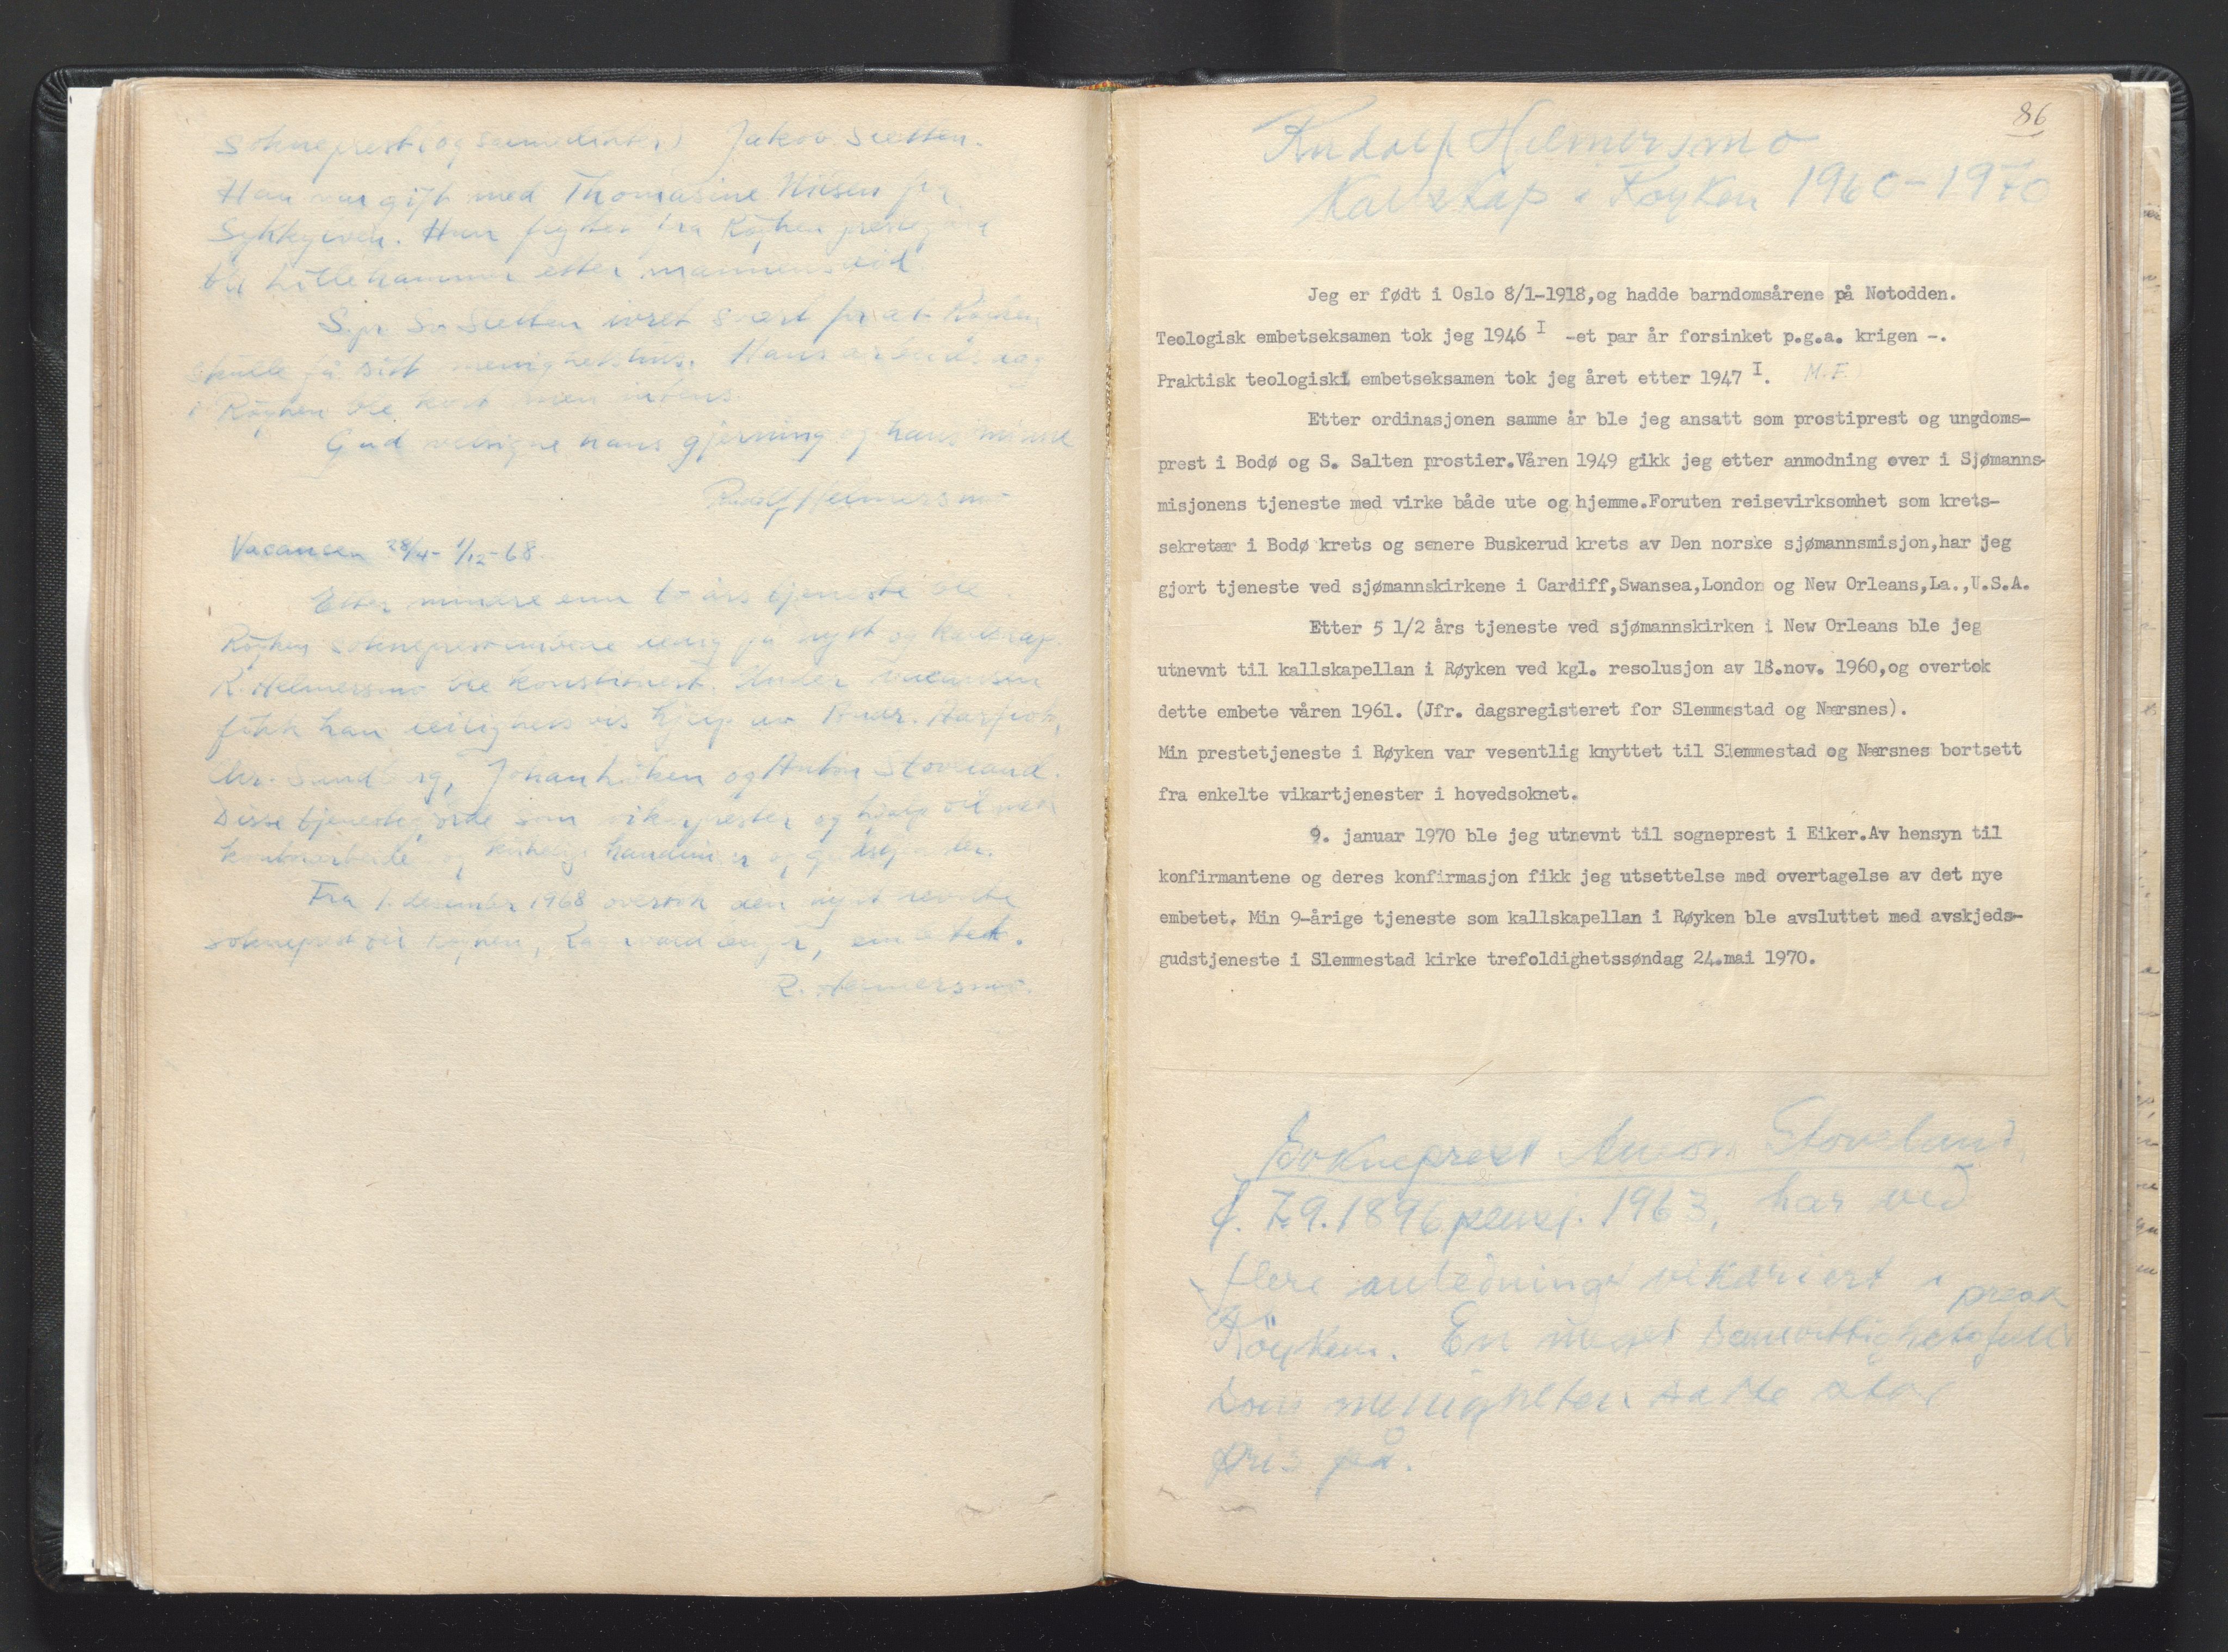 Sokneprest (og seminarist) Jakov Sletten.
Han var gift med Thomasine Nilsen fra
Sykkylven. Hun flyttet fra Røyken prestegård
til Lillehammer etter mannens død
Spr Sletten ivret svært for at Røyken
skulle få sitt menighetshus. Hans
i Røyken ble kort men intens.
Gud velsigne hans gjerning og hans minne
Rudolf Helmersmo
Vacansen 28/4 - 1/12-68.
Etter mindre enn års tjeneste ble
Røyken sokneprestembete ledig på nytt og kallskap.
R. Helmersmo ble konstituert. Under vacansen
fikk han leilighetsvis hjelp av Andr. Aarflot,
Chr. Sundberg, Johan Løken og Anton Stoveland.
Disse tjenestegjorde som vikarprester og hjalp til med
kontorarbeide og kirkelige handlinger og gudstjenester.
Fra 1. desember 1968 overtok den nyutnevnte
sokneprest til Røyken, embetet.
R. Helmersmo.
86
Rudolf Helmersmo
Kallskap i Røyken 1960-1970
Jeg er født i Oslo 8/1-1918,og hadde barndomsårene på Notodden.
Teologisk embetseksamen tok jeg 1946 I -et par år forsinket p.g.a. krigen -.
Praktisk teologiski embetseksamen tok jeg året etter 1947 I. M.F.
Etter ordinasjonen samme år ble jeg ansatt som prostiprest og ungdoms-
prest i Bodø og S. Salten prostier.Våren 1949 gikk jeg etter anmodning over i Sjømanns-
misjonens tjeneste med virke både ute og hjemme.Foruten reisevirksomhet som krets-
sekretær i Bodø krets og senere Buskerud krets av Den norske sjømannsmisjon,har jeg
gjort tjeneste ved sjømannskirkene i Cardiff,Swansea,London og New Orleans,La.,U.S.A.
Etter 5 1/2 års tjeneste ved sjømannskirken i New Orleans ble jeg
utnevnt til kallskapellan i Røyken ved kgl. resolusjon av 18.nov. 1960,og overtok
dette embete våren 1961. (Jfr. dagsregisteret for Slemmestad og Nærsnes).
Min prestetjeneste i Røyken var vesentlig knyttet til Slemmestad og Nærsnes bortsett
fra enkelte vikartjenester i hovedsoknet.
9. januar 1970 ble jeg utnevnt til sogneprest i Eiker.Av hensyn til
konfirmantene og deres konfirmasjon fikk jeg utsettelse med overtagelse av det nye
embetet. Min 9-årige tjeneste som kallskapellan i Røyken ble avsluttet med avskjeds-
gudstjeneste i Slemmestad kirke trefoldighetssøndag 24.mai 1970.
Sokneprest Anton Stoveland
f. 7.9.1896 pensj. 1963, har ved
flere anledninger vikariert i
Röyken. En meget samvittighetsfull prest
som menigheten satte stor
pris på.